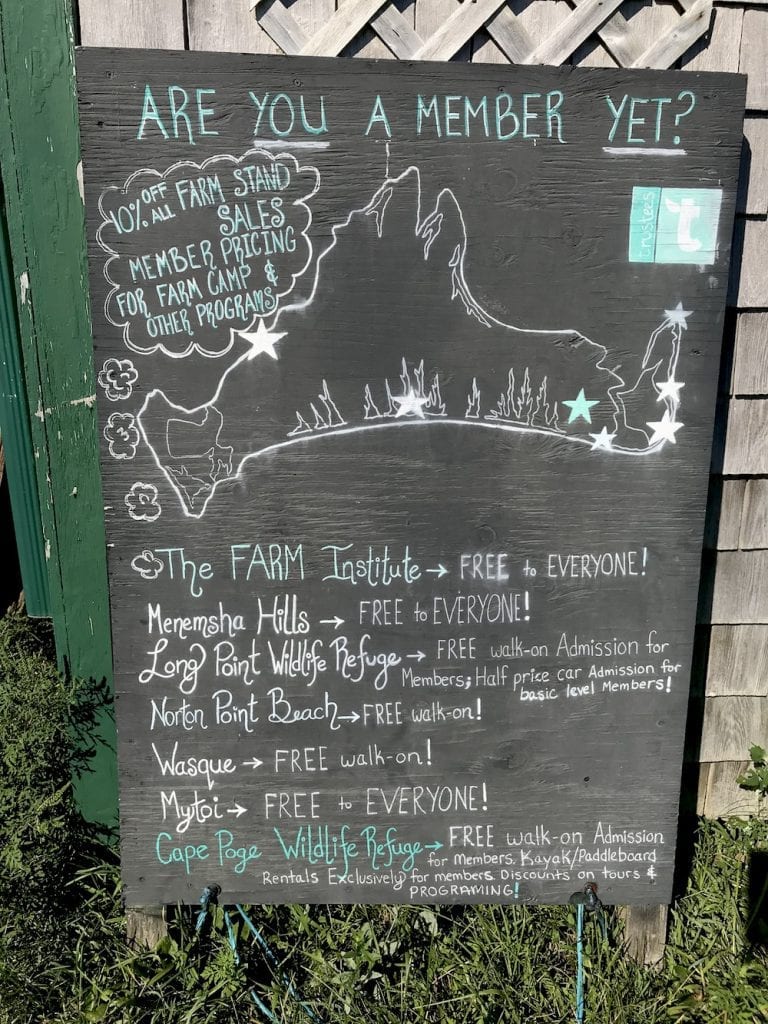 ARE YOU A MEMBER YET?
10% OFF ALL FARM STAND
SALES
MEMBER PRICING
FOR FARM CAMP &
OTHER PROGRAMS
trustees
t
The FARM Institute → FREE to EVERYONE!
Menemsha Hills → FREE to EVERYONE!
Long Point Wildlife Refuge → FREE walk-on Admission for
Members; Half price car Admission for
basic level Members!
Norton Point Beach → FREE walk-on!
Wasque → FREE walk-on!
Mytoi → FREE to EVERYONE!
Cape Poge Wildlife Refuge → FREE walk-on Admission
for members. Kayak/Paddleboard
Rentals Exclusively for members. Discounts on tours &
PROGRAMING!